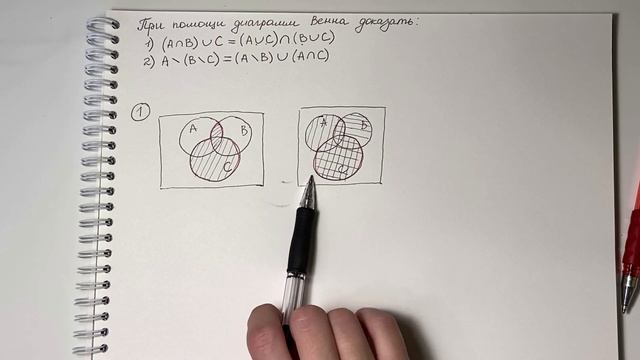 При помощи диаграмм Венна доказать:
1) (A∩B)∪C = (A∪C)∩(B∪C)
2) A∖(B∖C) = (A∖B)∪(A∩C)
1
A B
C
A B
C